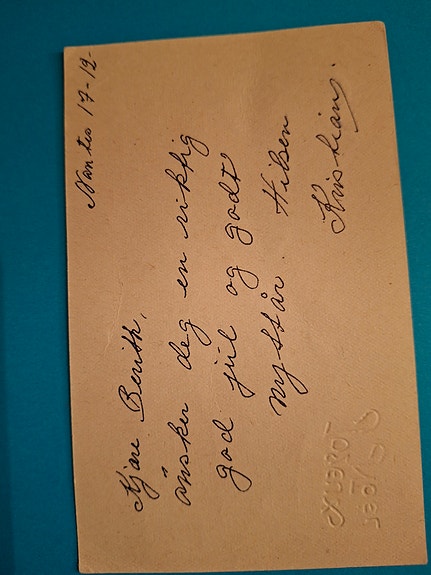 Nantes 17-12-
Kjære Berith,
ønsker deg en riktig
god jul og godt
nyttår. Hilsen
Kristian.